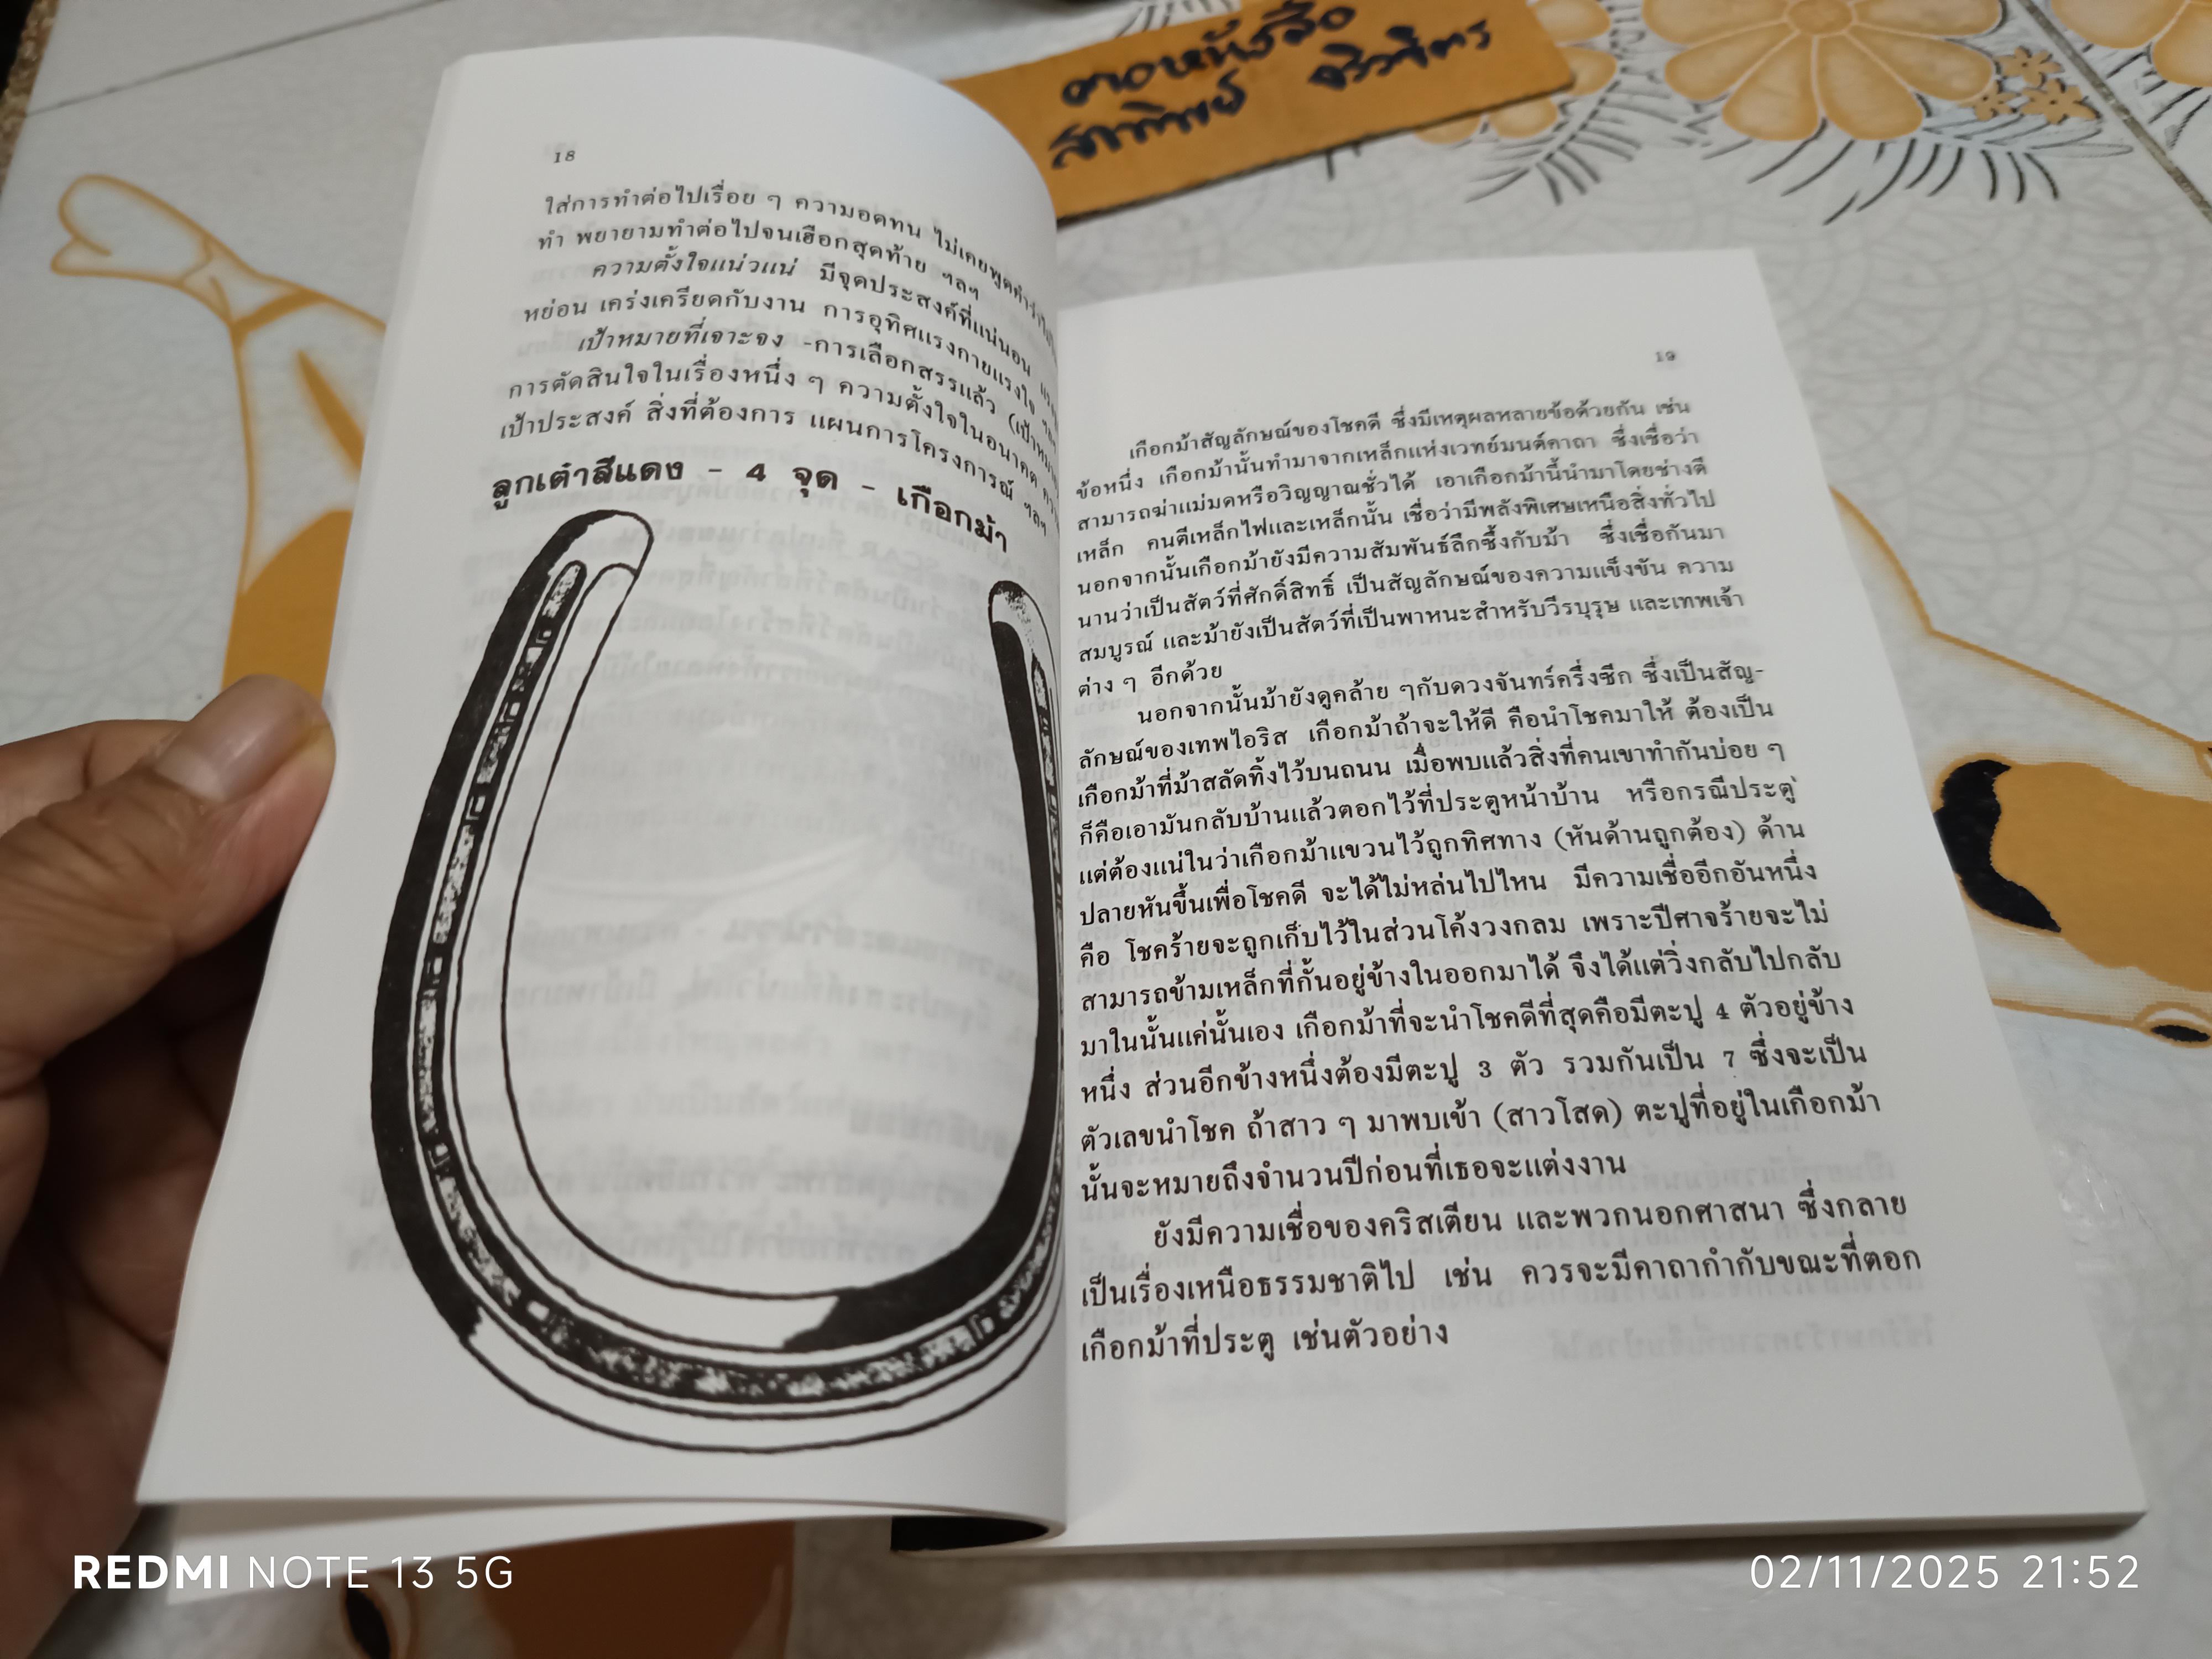 ตาอหนังสือ
สภาทิพย์ จิรวจิตร
18
ใส่การทำต่อไปเรื่อย ๆ ความอดทน ไม่เคยพูดคำว่า
ทำ พยายามทำต่อไปจนเฮือกสุดท้าย ฯลฯ
ความตั้งใจแน่วแน่ มีจุดประสงค์ที่แน่นอน
หย่อน เคร่งเครียดกับงาน การอุทิศแรงกายแรงใจ ฯลฯ
เป้าหมายที่เจาะจง -การเลือกสรรแล้ว
การตัดสินใจในเรื่องหนึ่ง ๆ ความตั้งใจในอนาคต
เป้าประสงค์ สิ่งที่ต้องการ แผนการโครงการณ์ ฯลฯ
ลูกเต๋าสีแดง - 4 จุด - เกือกม้า
19
เกือกม้าสัญลักษณ์ของโชคดี ซึ่งมีเหตุผลหลายข้อด้วยกัน เช่น
ข้อหนึ่ง เกือกม้านั้นทำมาจากเหล็กแห่งเวทย์มนต์คาถา ซึ่งเชื่อว่า
สามารถฆ่าแม่มดหรือวิญญาณชั่วได้ เอาเกือกม้านี้นำมาโดยช่างตี
เหล็ก คนตีเหล็กไฟและเหล็กนั้น เชื่อว่ามีพลังพิเศษเหนือสิ่งทั่วไป
นอกจากนั้นเกือกม้ายังมีความสัมพันธ์ลึกซึ้งกับม้า ซึ่งเชื่อกันมา
นานว่าเป็นสัตว์ที่ศักดิ์สิทธิ์ เป็นสัญลักษณ์ของความแข็งขัน ความ
สมบูรณ์ และม้ายังเป็นสัตว์ที่เป็นพาหนะสำหรับวีรบุรุษ และเทพเจ้า
ต่าง ๆ อีกด้วย
นอกจากนั้นม้ายังดูคล้าย ๆกับดวงจันทร์ครึ่งซีก ซึ่งเป็นสัญ-
ลักษณ์ของเทพไอริส เกือกม้าถ้าจะให้ดี คือนำโชคมาให้ ต้องเป็น
เกือกม้าที่ม้าสลัดทิ้งไว้บนถนน เมื่อพบแล้วสิ่งที่คนเขาทำกันบ่อย ๆ
ก็คือเอามันกลับบ้านแล้วตอกไว้ที่ประตูหน้าบ้าน หรือกรณีประตู
แต่ต้องแน่ในว่าเกือกม้าแขวนไว้ถูกทิศทาง (หันด้านถูกต้อง) ด้าน
ปลายหันขึ้นเพื่อโชคดี จะได้ไม่หล่นไปไหน มีความเชื่ออีกอันหนึ่ง
คือ โชคร้ายจะถูกเก็บไว้ในส่วนโค้งวงกลม เพราะปีศาจร้ายจะไม่
สามารถข้ามเหล็กที่กั้นอยู่ข้างในออกมาได้ จึงได้แต่วิ่งกลับไปกลับ
มาในนั้นแค่นั้นเอง เกือกม้าที่จะนำโชคดีที่สุดคือมีตะปู 4 ตัวอยู่ข้าง
หนึ่ง ส่วนอีกข้างหนึ่งต้องมีตะปู 3 ตัว รวมกันเป็น 7 ซึ่งจะเป็น
ตัวเลขนำโชค ถ้าสาว ๆ มาพบเข้า (สาวโสด) ตะปูที่อยู่ในเกือกม้า
นั้นจะหมายถึงจำนวนปีก่อนที่เธอจะแต่งงาน
ยังมีความเชื่อของคริสเตียน และพวกนอกศาสนา ซึ่งกลาย
เป็นเรื่องเหนือธรรมชาติไป เช่น ควรจะมีคาถากำกับขณะที่ตอก
เกือกม้าที่ประตู เช่นตัวอย่าง
REDMI NOTE 13 5G
02/11/2025 21:52